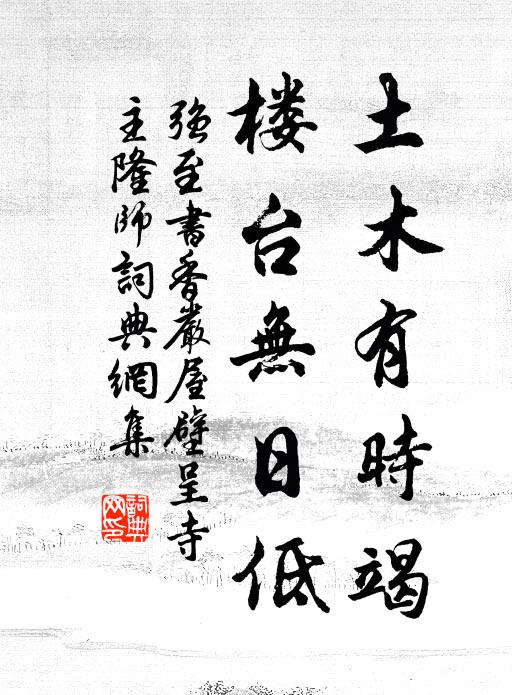 土木有時竭
楼台無日低
強至書香嚴屋壁呈寺
主隆師詞典網集
詞典
网印